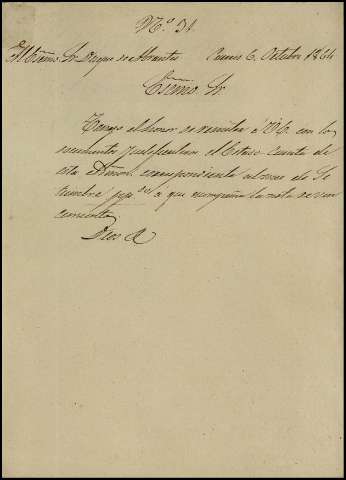 Nº 31
Al Exmo. Sr. Duque de Abrantes 6 Octubre 1864
Exmo. Sr.
Tengo el honor de remitir á V.E. con los
documentos justificativos el Estado cuenta de
esta correspondiente al mes de Se
tiembre ppdo. á que acompaña la nota de ven
cimientos
Dios &